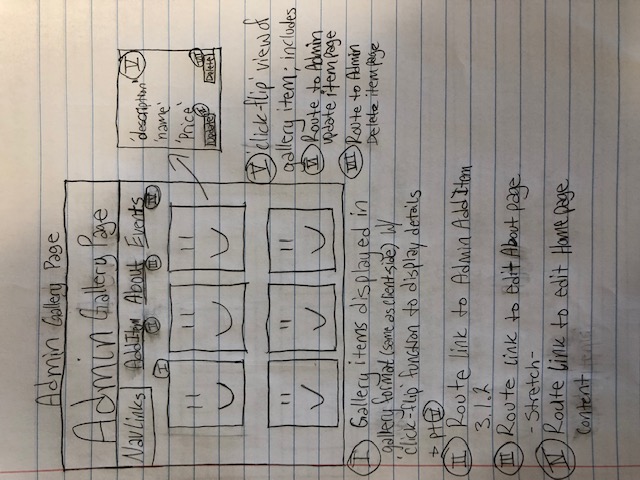 Admin Gallery Page
Admin Gallery Page
Nav Links Add Item About Events
I II III IV
'description' V
'name'
'Price'
VI VII
Update Delete
V 'click-flip' view of
gallery item; includes
VI Route to Admin
update item page
VII Route to Admin
Delete item page
I Gallery items displayed in
gallery format (same as client side) w/
'click-flip' function to display details
→ pt V
II Route link to Admin Add Item
3.1.2
III Route link to edit About page
-Stretch-
IV Route link to edit Home page
Content